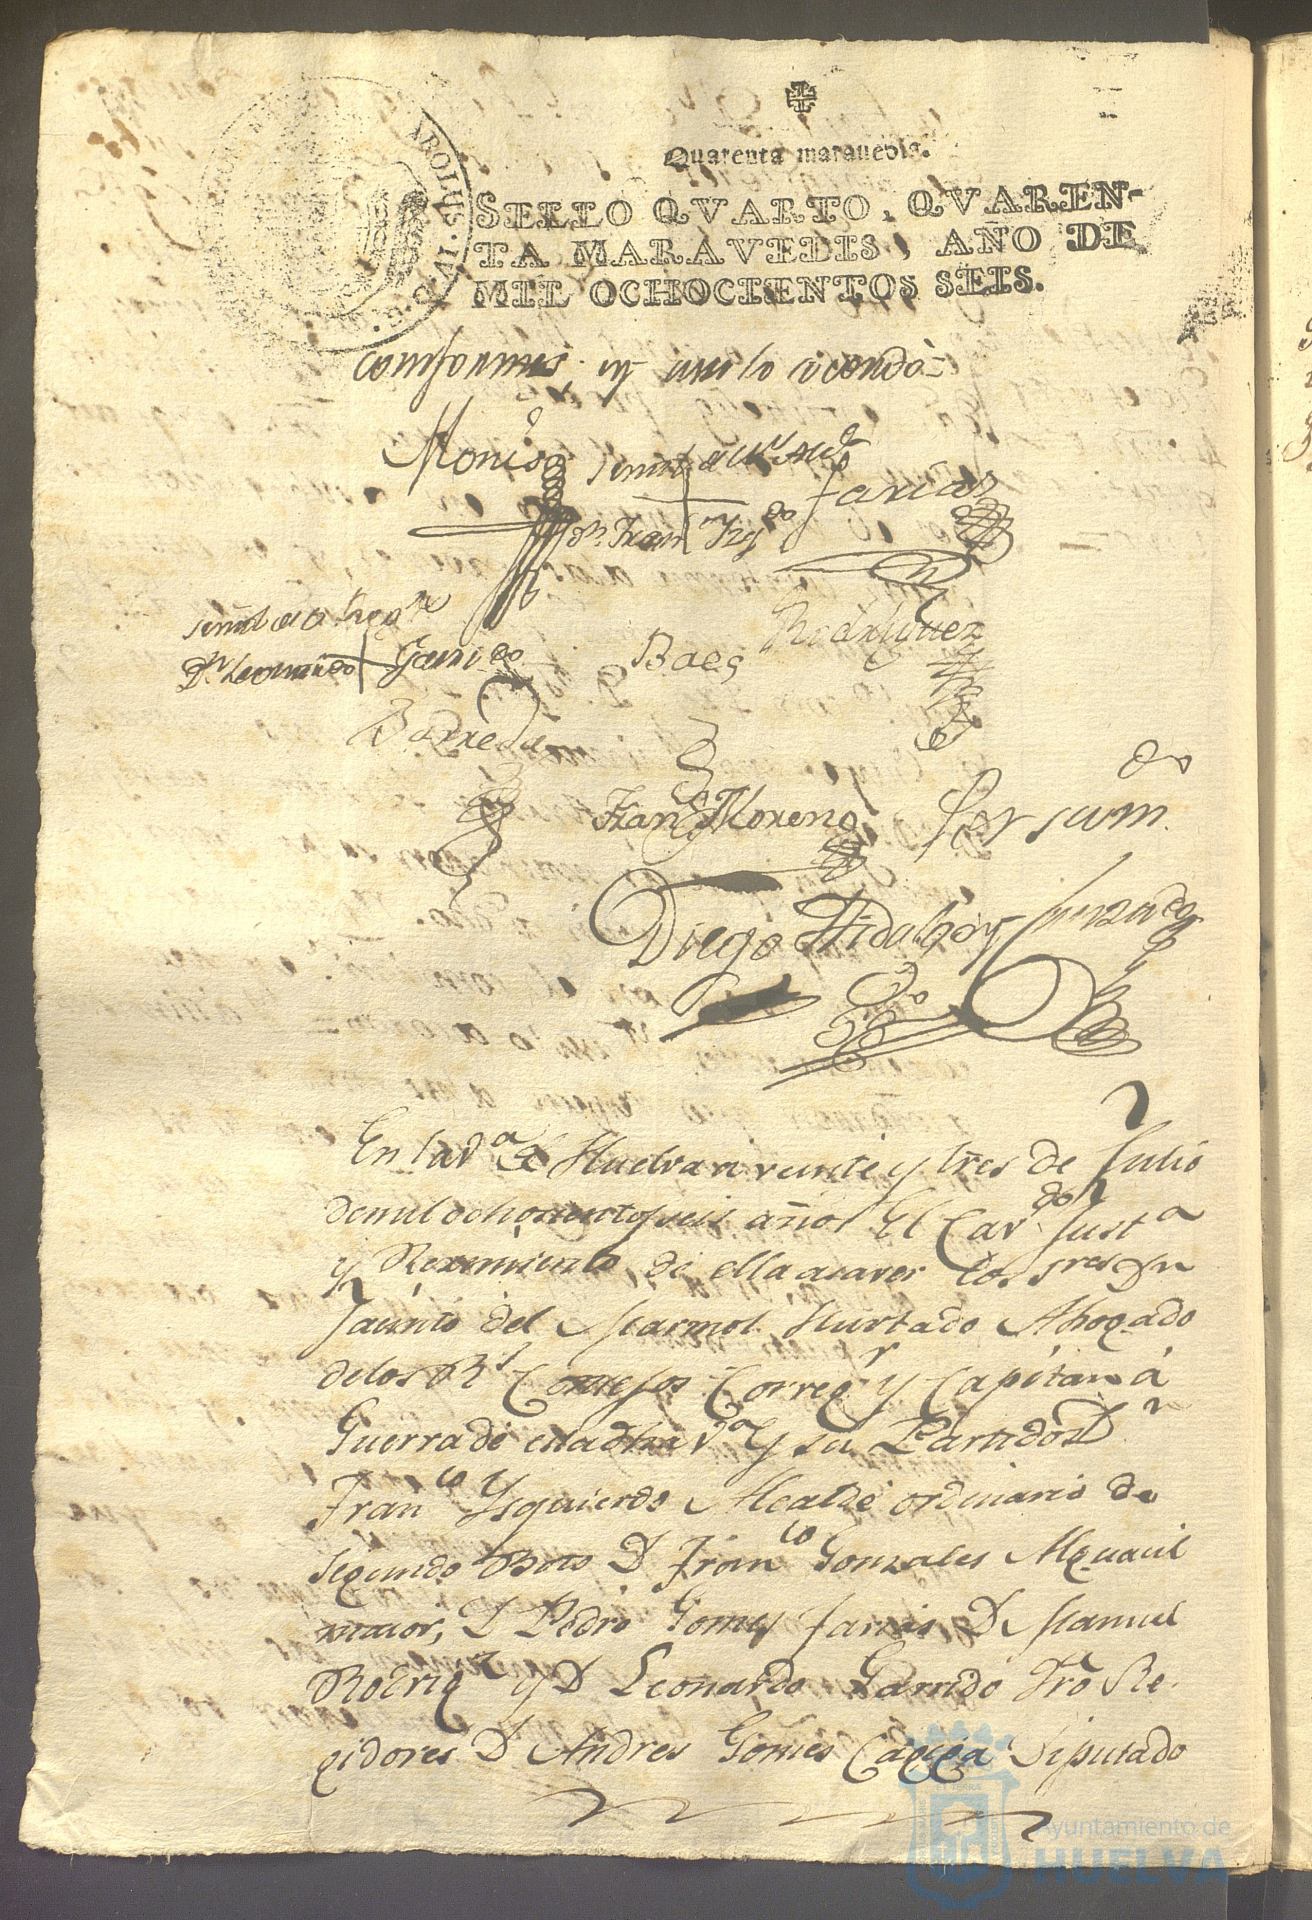 Quarenta maravedis.
SELLO QVARTO, QVAREN-
TA MARAVEDIS, AÑO DE
MIL OCHOCIENTOS SEIS.
CAROLUS IV. D. G.
conformes y asi lo acordó=
Mones
señal de
Farias
Dn. Fran
señal de
Rodriguez
Dn. Leonardo Garrido
Baes
Barreda
Fran Moreno
Por su m.do
Diego Hidalgo y
En la va de Huelva a veinte y tres de Julio
de mil ochocientos y seis años El Cavdo Justa
y Reximiento de ella a saver los sres Dn
Jacinto del Marmol Hurtado Abogado
de los Rs Consejos Corregr y Capitan á
Guerra de esta dha va y su Partido Dn
Franco Ysquierdo Alcalde ordinario de
segundo Boto D Franco Gonzales Alguacil
maior, D Pedro Gomes Farias D Manuel
Rodrigz y D Leonardo Garrido Re-
gidores D Andres Gomes Diputado
Ayuntamiento de
HUELVA